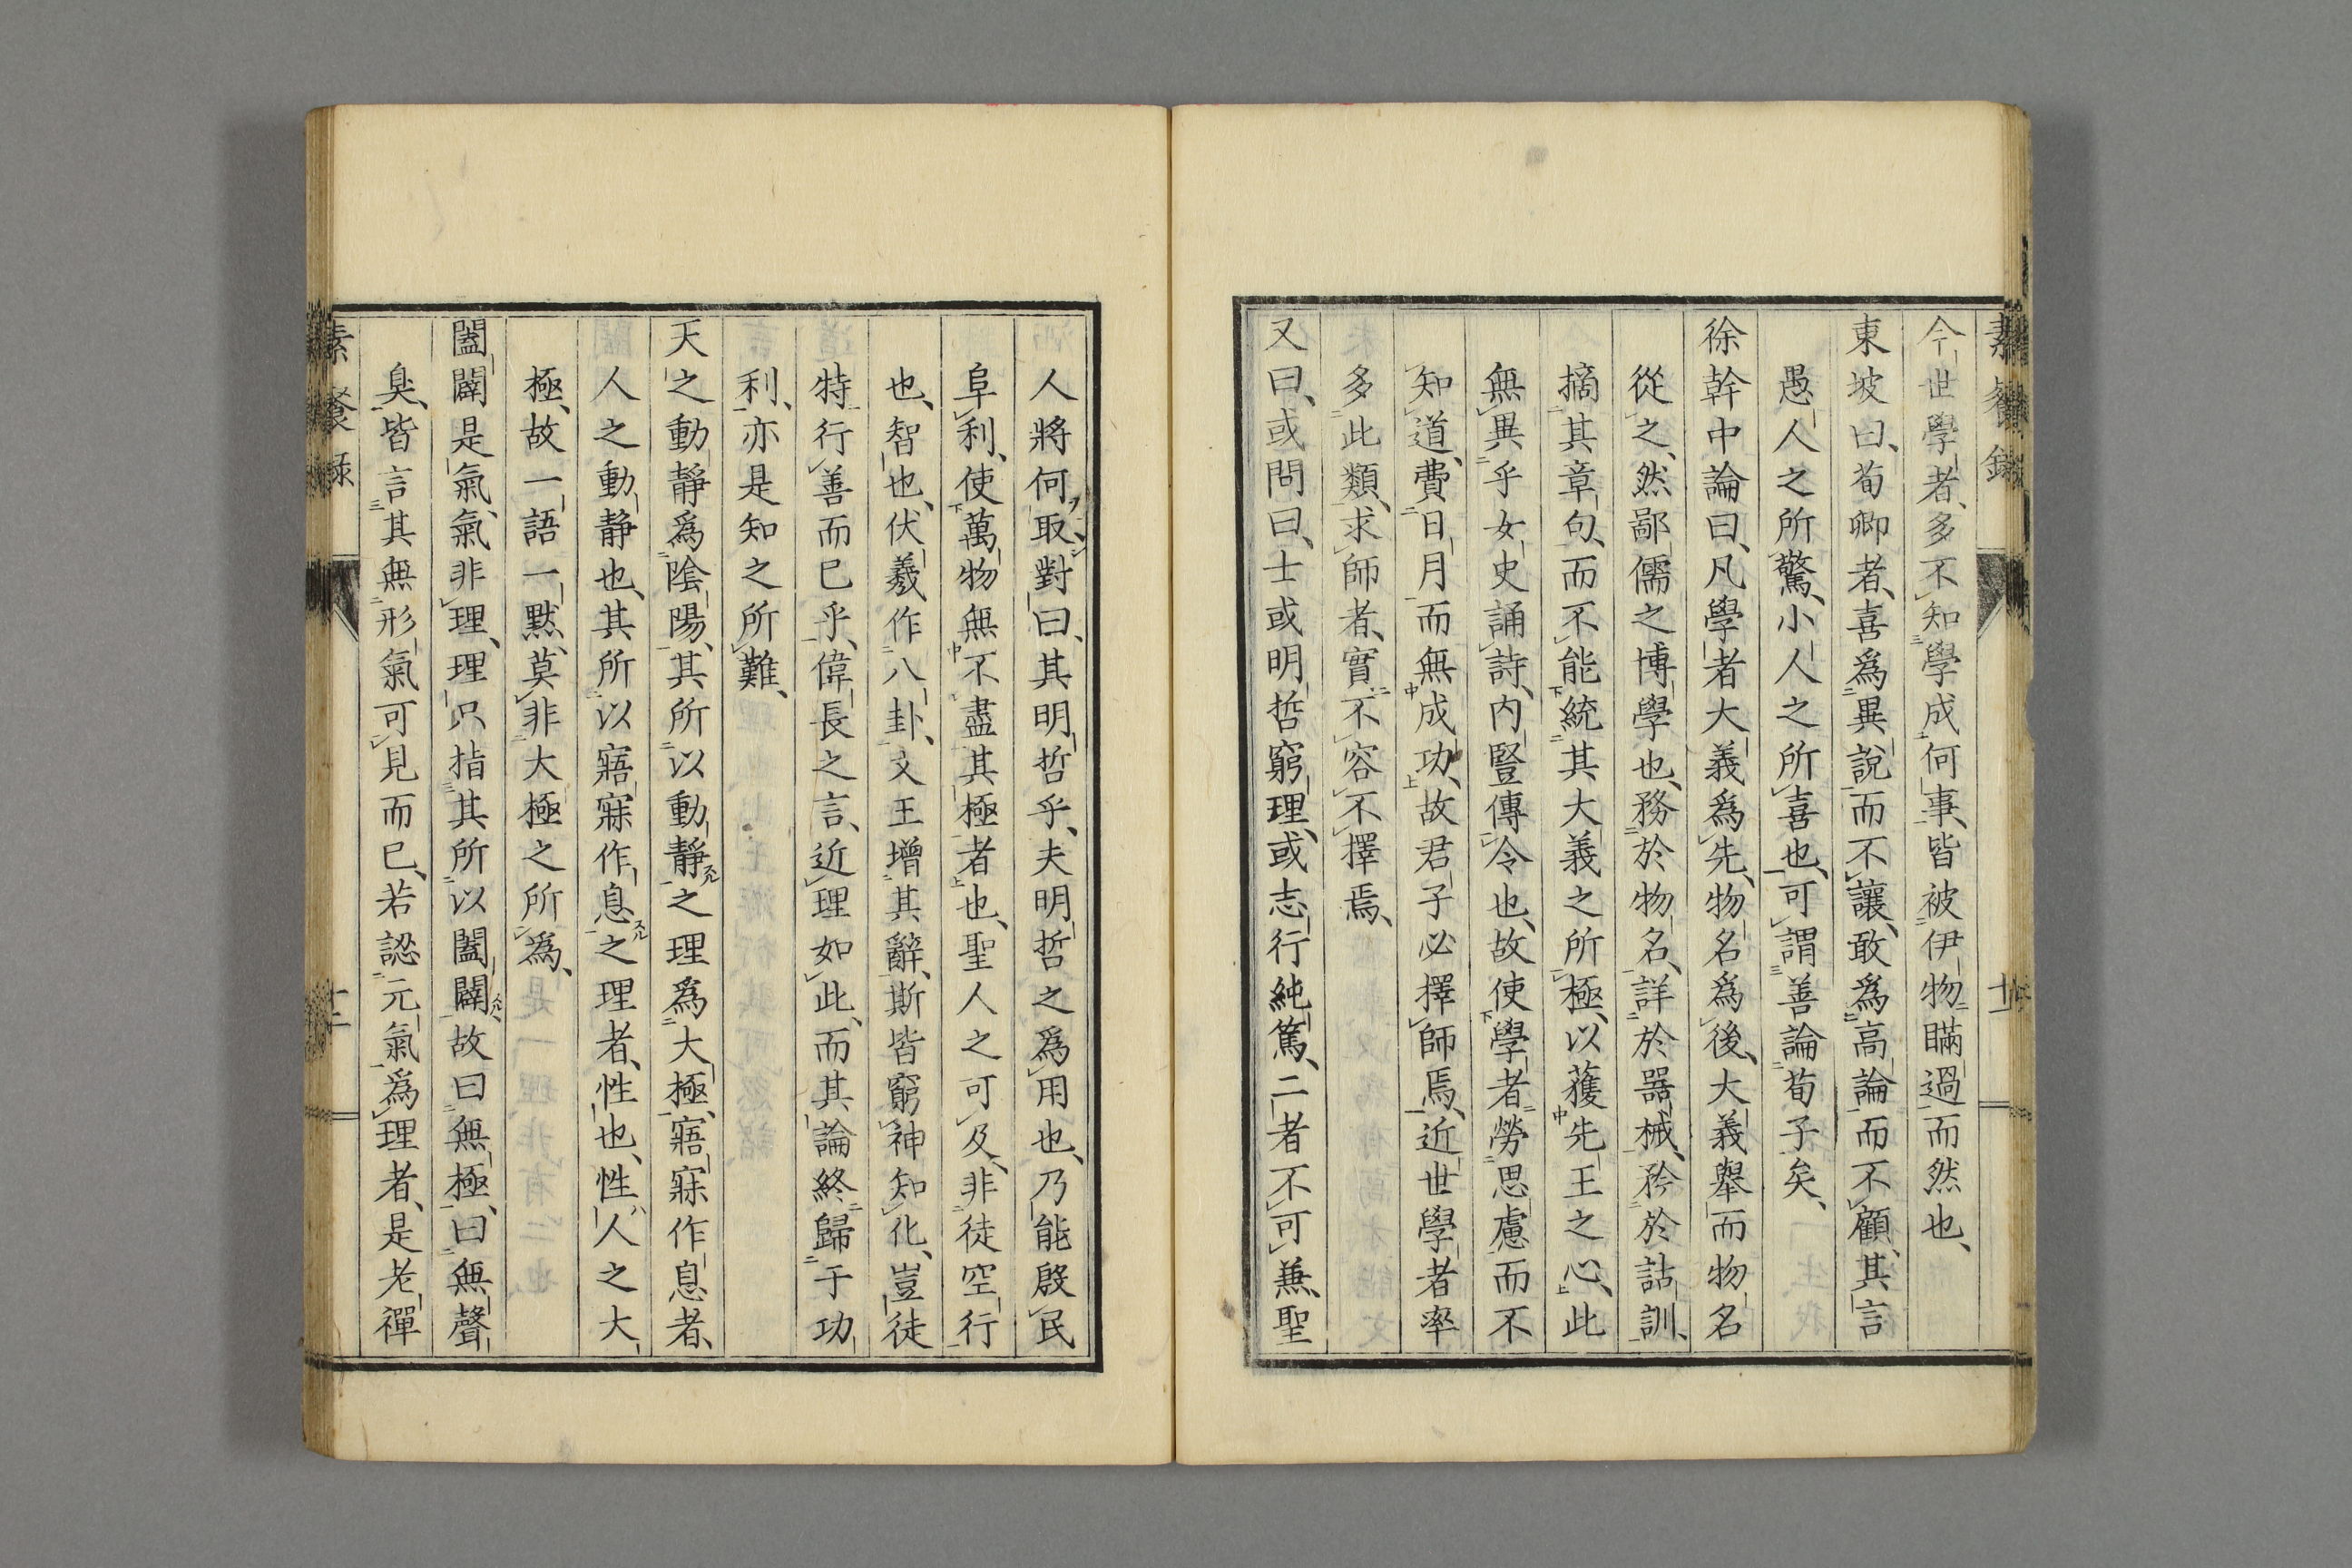 素餐錄
十一
今世學者、多不知學成何事、皆被伊物瞞過而然也、
東坡曰、荀卿者、喜爲異說而不讓、敢爲高論而不顧、其言
愚人之所驚、小人之所喜也、可謂善論荀子矣、
徐幹中論曰、凡學者大義爲先、物名爲後、大義舉而物名
從之、然鄙儒之博學也、務於物名、詳於器械、矜於詁訓、
摘其章句、而不能統其大義之所極、以獲先王之心、此
無異乎女史誦詩、內豎傳令也、故使學者勞思慮而不
知道、費日月而無成功、故君子必擇師焉、近世學者率
多此類、求師者、實不容不擇焉、
又曰、或問曰、士或明哲窮理、或志行純篤、二者不可兼、聖
人將何取對曰、其明哲乎、夫明哲之爲用也、乃能殷民
阜利、使萬物無不盡其極者也、聖人之可及、非徒空行
也、智也、伏羲作八卦、文王增其辭、斯皆窮神知化、豈徒
特行善而已乎、偉長之言、近理如此、而其論終歸于功
利、亦是知之所難、
天之動靜爲陰陽、其所以動靜之理爲大極、寤寐作息者、
人之動靜也、其所以寤寐作息之理者、性也、性人之大
極、故一語一默、莫非大極之所爲、
闔闢是氣、氣非理、理只指其所以闔闢、故曰無極、曰無聲
臭、皆言其無形氣可見而已、若認元氣爲理者、是老禪
素餐錄
十二